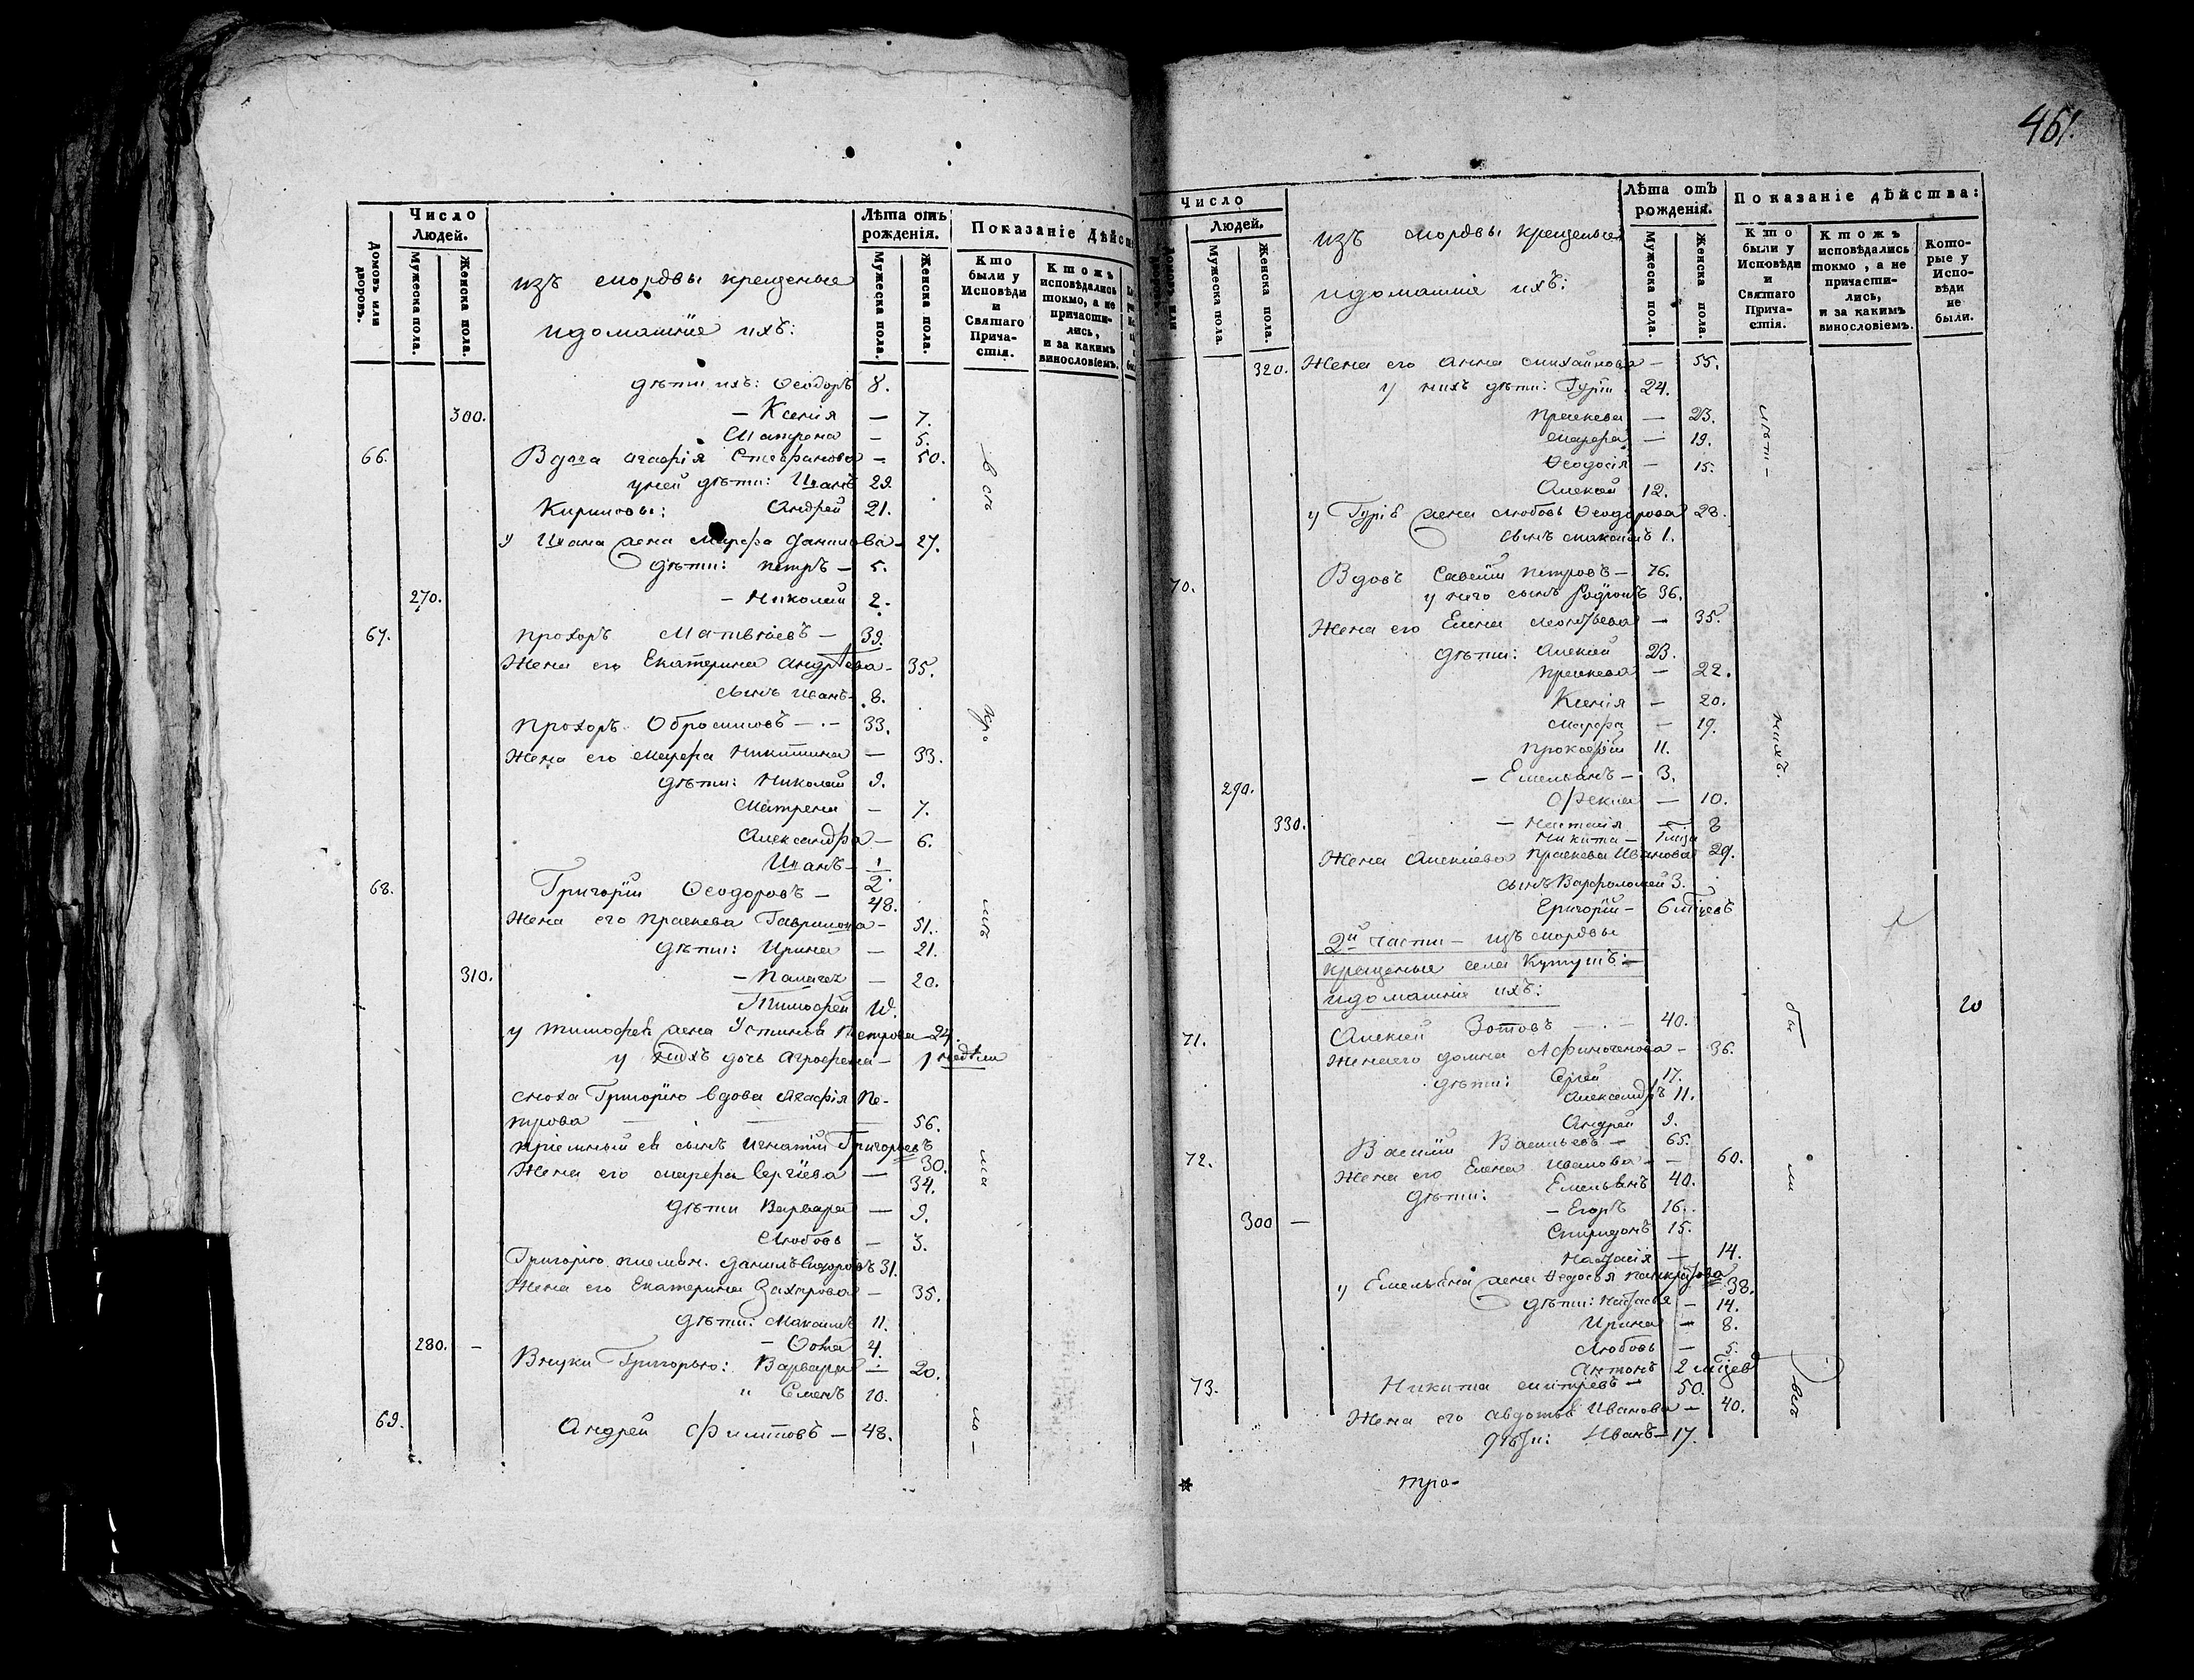 461.
Число
Людей.
Домовъ или дворовъ.
Мужеска пола.
Женска пола.
изъ мордвы крещеные
идомашніе ихъ:
Лѣта отъ рожденія.
Мужеска пола.
Женска пола.
Показаніе Дѣйст
Кто были у Исповѣди и Святаго Причастія.
Ктожъ исповѣдались токмо, а не причастились, и за какимъ винословіемъ.
дѣти ихъ: Ѳеодоръ 8.
300. – Ксенія – 7.
Матрена – 5.
66. Вдова Агафія Стефанова – 50.
уней дѣти: Иванъ 29.
Кириловы: Андрей 21.
У Ивана жена Марфа Данилова – 27.
Дѣти: петръ – 5.
270. – Николай 2.
67. прохоръ Матвѣевъ – 39.
Жена его Екатерина Андрѣева – 35.
сынъ Иванъ – 8.
прохоръ Обросимовъ – . – 33.
Жена его Марфа Никитина – 33.
дѣти: Николай 9.
Матрена – 7.
Александра – 6.
Иванъ – 1/2
68. Григорій Ѳеодоровъ – 48.
Жена его праскева Гаврилова – 51.
дѣти: Ирина – 21.
310. – Палагея – 20.
Тимофей
у тимофея жена Устинья Петрова – 24.
у нихъ дочь Агрофена – 1 недѣли
сноха Григорію вдова Агафія Пе-
трова – – – 56.
пріемный ея сынъ Игнатій Григорьевъ 30.
Жена его марфа Сергіева – 34.
дѣти Варвара – 9.
Любовь – 3.
Григорію племян. Данилъ Сидоровъ 31.
Жена его Екатерина Захарова – 35.
дѣти: Максимъ 11.
280. – – Ѳома 4.
Внуки Григорью: Варвара – 20.
" Семенъ 10.
69. Андрей Филиповъ – 48.
Число
Людей.
Мужеска пола.
Женска пола.
изъ мордвы крещеные
идомашніе ихъ:
Лѣта отъ рожденія.
Мужеска пола.
Женска пола.
Показаніе дѣйства:
Кто были у Исповѣди и Святаго Причастія.
Ктожъ исповѣдались токмо, а не причастились, и за какимъ винословіемъ.
Которые у Исповѣди не были.
320. Жена его Анна михайлова – 55.
у нихъ дѣти: Гурій 24.
праскева – 23.
марфа – 19.
Ѳеодосія – 15.
Алексей 12.
у Гурія жена любовь Ѳеодорова 28.
сынъ максимъ 1.
70. Вдовъ Савелій петровъ – 76.
у него сынъ Родіонъ 36.
Жена его Елена Леонтьева – 35.
дѣти: Алексей 23.
праскева – 22.
Ксенія – 20.
марфа – 19.
прокофій 11.
290. – Емельянъ – 3.
Ѳекла – 10.
330. – Наталія – 8
Никита –
Жена Алексіева праскева Иванова 29.
сынъ Варфоломей 3.
Григорій – 6 мѣцевъ
2й части – изъ мордвы
крещеные села Кутушъ: –
идомашніе ихъ:
71. Алексей Зотовъ – . – 40.
Женаего домна Афиногенова – 36.
дѣти: Сергей 17.
Александръ 11.
Андрей 9.
72. Василій Васильевъ – 65.
Жена его Елена Иванова – – 60.
дѣти: Емельянъ 40.
300 – – Егоръ 16.
Спиридонъ 15.
Настасія – 14.
у Емельяна жена Ѳедосья панкратова 38.
дѣти: Настасья – 14.
Ирина – 8.
Любовь – 5.
Антонъ 2 мѣцев
73. Никита дмитріевъ – 50.
Жена его Авдотья Иванова – 40.
дѣти: Иванъ – 17.
тро-